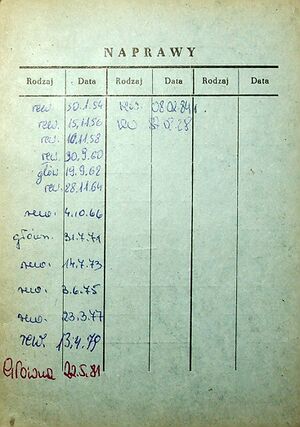 NAPRAWY
Rodzaj Data Rodzaj Data Rodzaj Data
rew. 30.1.54 rew. 08.02.84
rew. 15.11.56 rew
rew. 10.11.58
rew. 30.9.60
głów 19.9.62
rew. 28.11.64
rew. 4.10.66
główn. 31.7.71
rew. 14.7.73
rew. 3.6.75
rew. 23.3.77
rew. 13.4.79
Główna 22.5.81